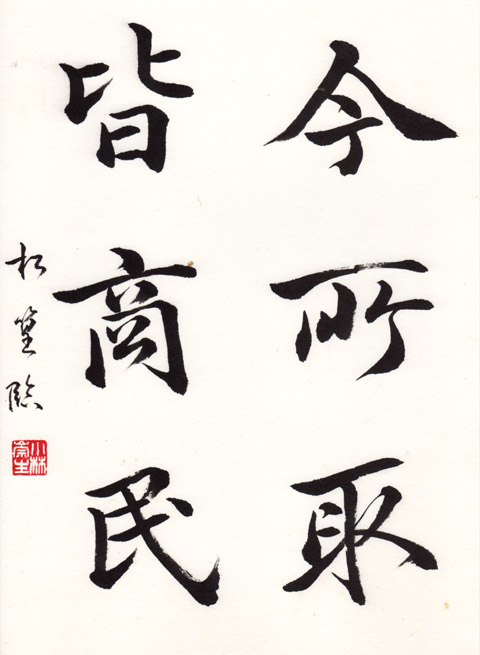 今所取
皆商民
松篁臨
小林
崇生